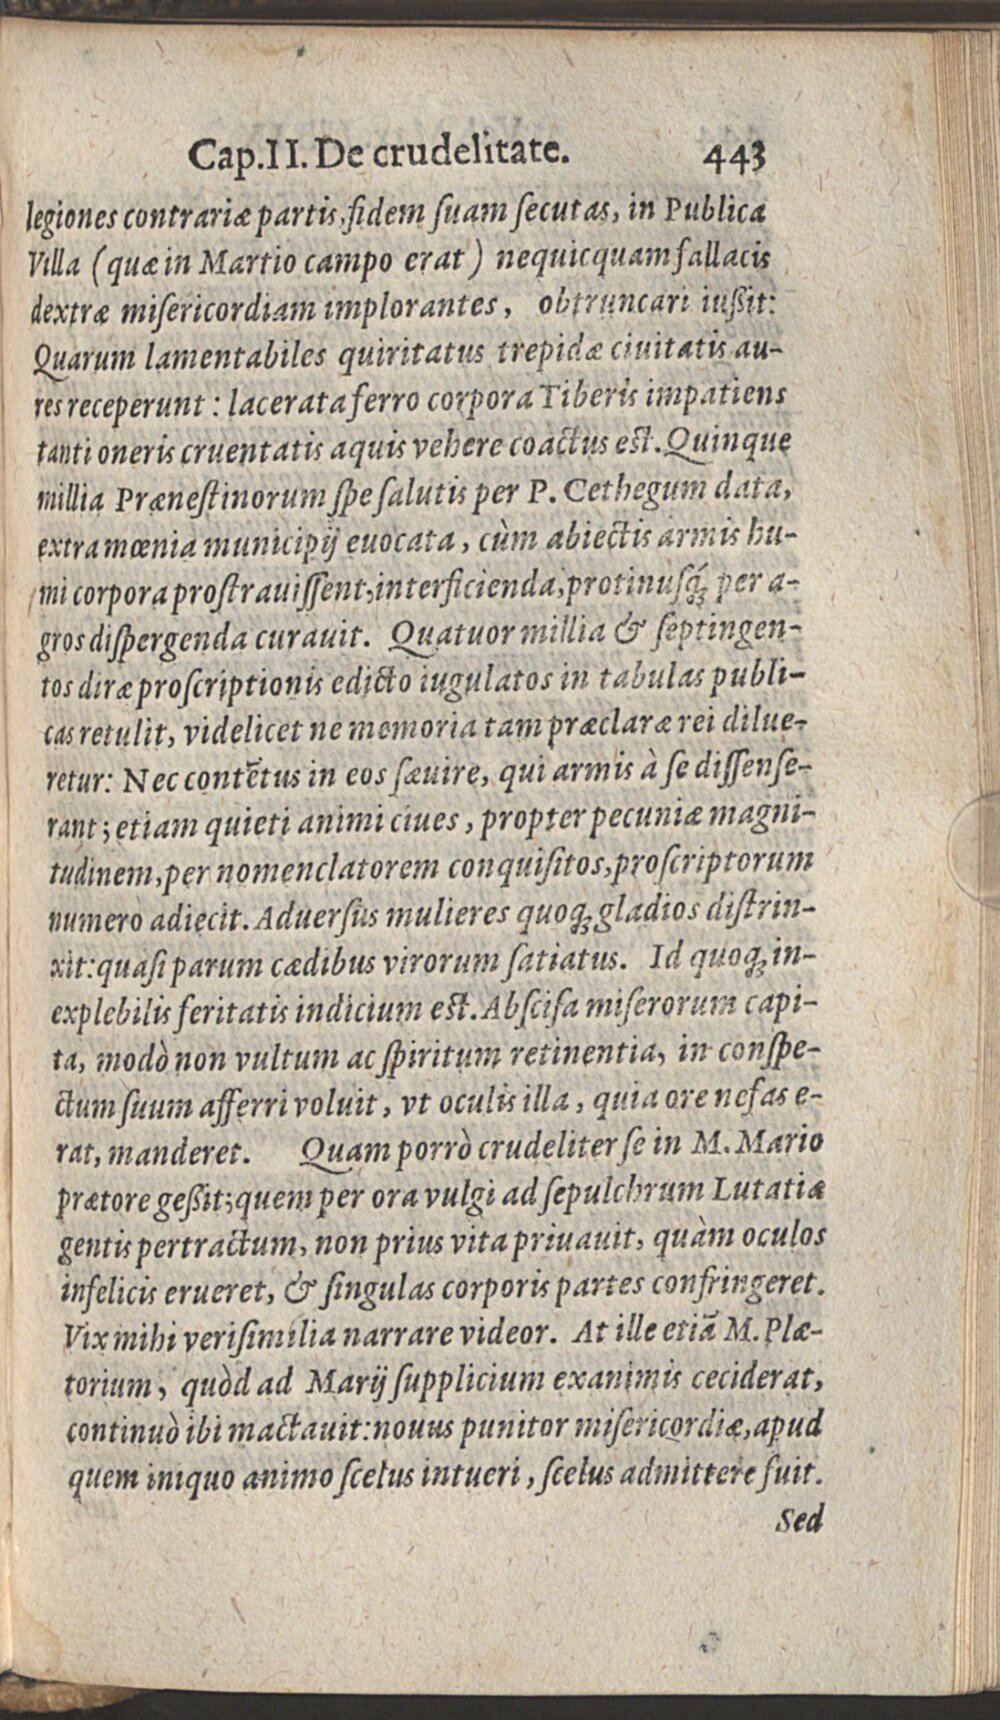 Cap.II. De crudelitate. 443
legiones contrariæ partis, fidem ſuam ſecutas, in Publica
Villa (quæ in Martio campo erat) nequicquam fallacis
dextræ miſericordiam implorantes, obtruncari iußit:
Quarum lamentabiles quiritatus trepidæ ciuitatis au-
res receperunt: lacerata ferro corpora Tiberis impatiens
tanti oneris cruentatis aquis vehere coactus eſt. Quinque
millia Præneſtinorum ſpe ſalutis per P. Cethegum data,
extra mœnia municipij euocata, cùm abiectis armis hu-
mi corpora proſtrauiſſent, interficienda, protinuſq́; per a-
gros diſpergenda curauit. Quatuor millia & ſeptingen-
tos diræ proſcriptionis edicto iugulatos in tabulas publi-
cas retulit, videlicet ne memoria tam præclaræ rei dilue-
retur: Nec contētus in eos ſæuire, qui armis à ſe diſſenſe-
rant; etiam quieti animi ciues, propter pecuniæ magni-
tudinem, per nomenclatorem conquiſitos, proſcriptorum
numero adiecit. Aduerſùs mulieres quoq; gladios diſtrin-
xit: quaſi parum cædibus virorum ſatiatus. Id quoq; in-
explebilis feritatis indicium eſt. Abſciſa miſerorum capi-
ta, modò non vultum ac ſpiritum retinentia, in conſpe-
ctum ſuum afferri voluit, vt oculis illa, quia ore nefas e-
rat, manderet. Quam porrò crudeliter ſe in M. Mario
prætore geßit; quem per ora vulgi ad ſepulchrum Lutatiæ
gentis pertractum, non prius vita priuauit, quàm oculos
infelicis erueret, & ſingulas corporis partes confringeret.
Vix mihi veriſimilia narrare videor. At ille etiā M. Plæ-
torium, quòd ad Marij ſupplicium exanimis ceciderat,
continuò ibi mactauit: nouus punitor miſericordiæ, apud
quem iniquo animo ſcelus intueri, ſcelus admittere fuit.
Sed